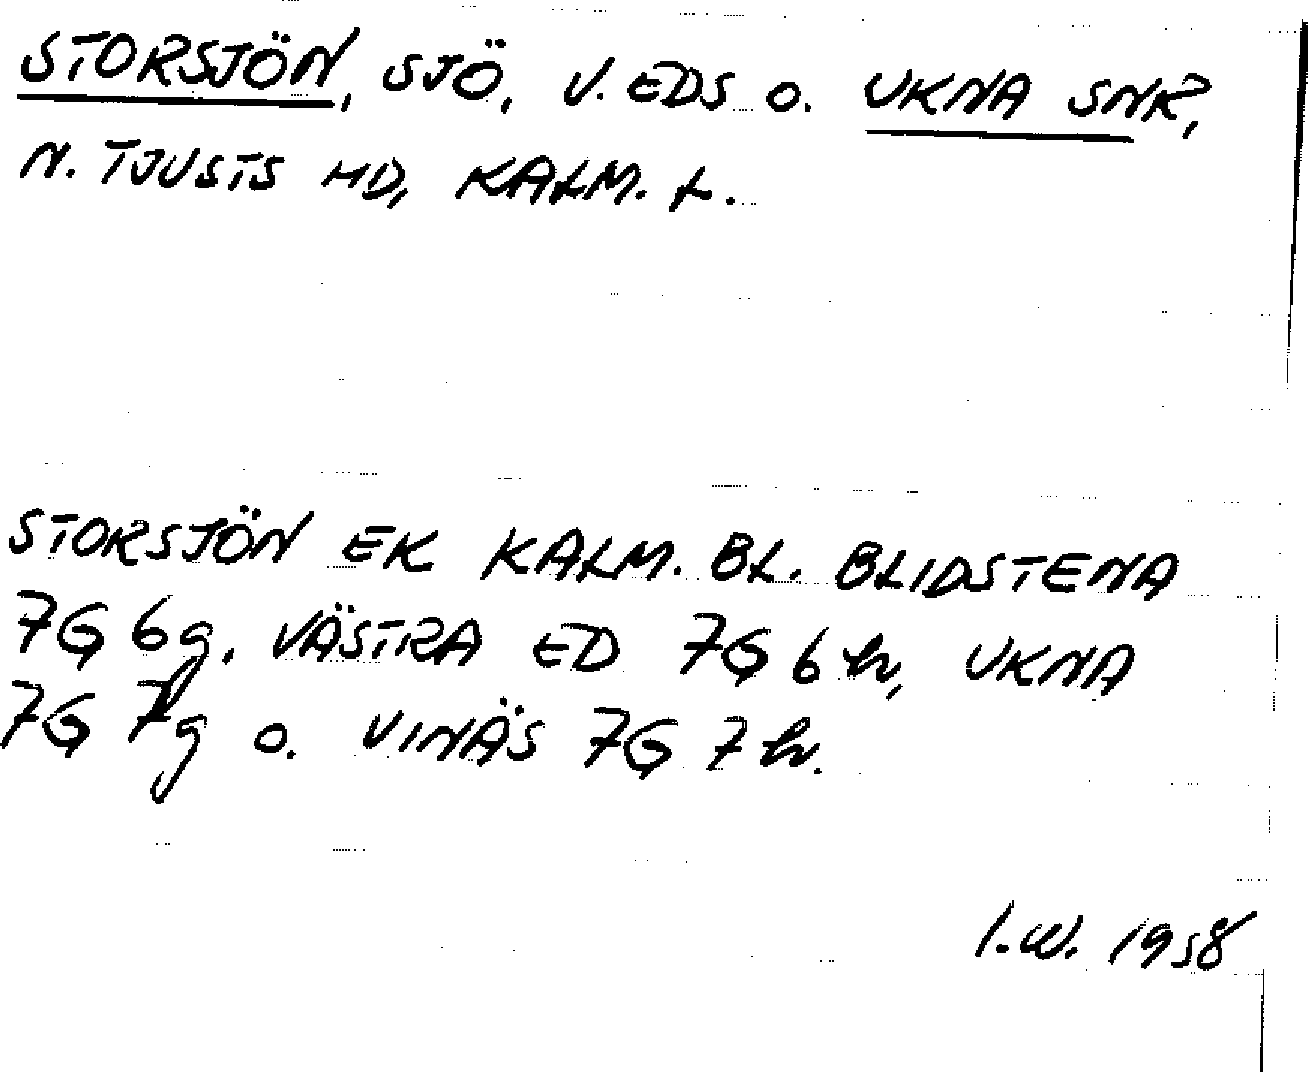 STORSJÖN, SJÖ, V. EDS O. UKNA SNR,
N. TJUSTS HD, KALM. L.
STORSJÖN EK KALM. BL. BLIDSTENA
7G 6g. VÄSTRA ED 7G 6h, UKNA
7G 7g O. VINÄS 7G 7h.
I.W. 1958